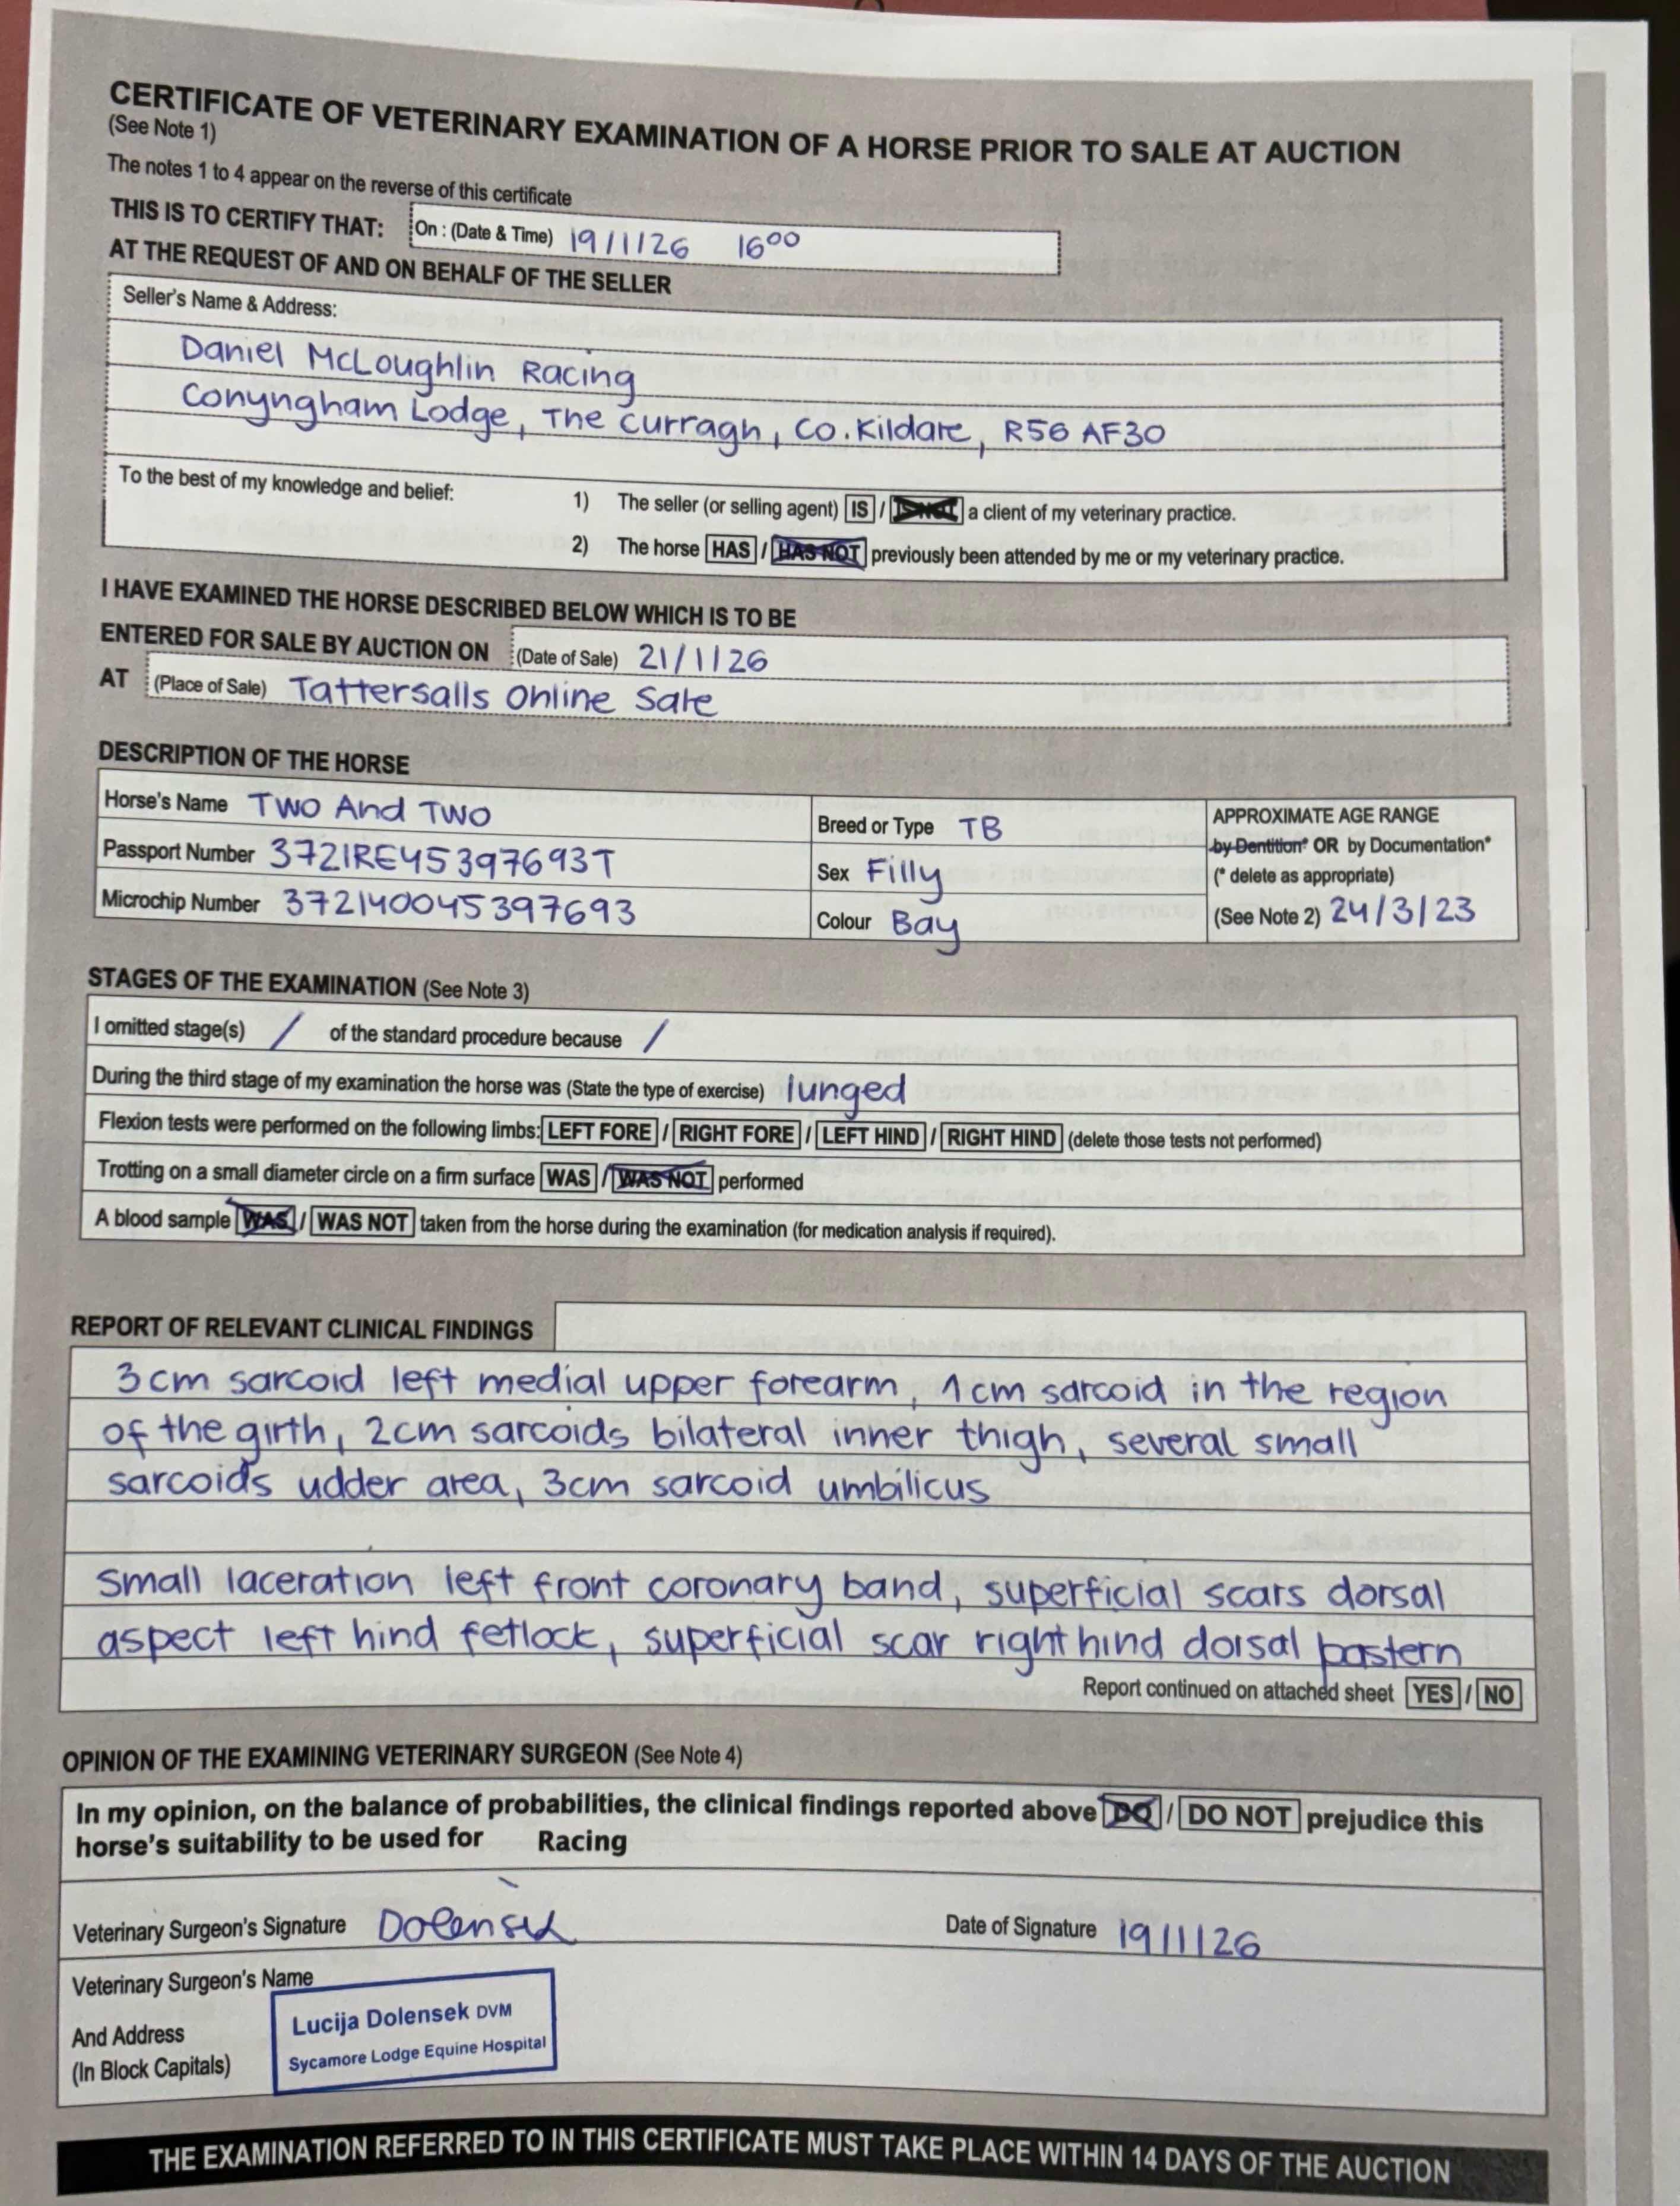 CERTIFICATE OF VETERINARY EXAMINATION OF A HORSE PRIOR TO SALE AT AUCTION
(See Note 1)
The notes 1 to 4 appear on the reverse of this certificate
THIS IS TO CERTIFY THAT: On : (Date & Time) 19/1/26 16⁰⁰
AT THE REQUEST OF AND ON BEHALF OF THE SELLER
Seller's Name & Address:
Daniel McLoughlin Racing
Conyngham Lodge, The Curragh, Co. Kildare, R56 AF30
To the best of my knowledge and belief: 1) The seller (or selling agent) IS / IS NOT a client of my veterinary practice.
2) The horse HAS / HAS NOT previously been attended by me or my veterinary practice.
I HAVE EXAMINED THE HORSE DESCRIBED BELOW WHICH IS TO BE
ENTERED FOR SALE BY AUCTION ON (Date of Sale) 21/1/26
AT (Place of Sale) Tattersalls Online Sale
DESCRIPTION OF THE HORSE
Horse's Name Two And Two Breed or Type TB APPROXIMATE AGE RANGE
by Dentition* OR by Documentation*
Passport Number 372IRE45397693T Sex Filly (* delete as appropriate)
Microchip Number 372140045397693 Colour Bay (See Note 2) 24/3/23
STAGES OF THE EXAMINATION (See Note 3)
I omitted stage(s) / of the standard procedure because /
During the third stage of my examination the horse was (State the type of exercise) lunged
Flexion tests were performed on the following limbs: LEFT FORE / RIGHT FORE / LEFT HIND / RIGHT HIND (delete those tests not performed)
Trotting on a small diameter circle on a firm surface WAS / WAS NOT performed
A blood sample WAS / WAS NOT taken from the horse during the examination (for medication analysis if required).
REPORT OF RELEVANT CLINICAL FINDINGS
3cm sarcoid left medial upper forearm, 1cm sarcoid in the region
of the girth, 2cm sarcoids bilateral inner thigh, several small
sarcoids udder area, 3cm sarcoid umbilicus
Small laceration left front coronary band, superficial scars dorsal
aspect left hind fetlock, superficial scar right hind dorsal pastern
Report continued on attached sheet YES / NO
OPINION OF THE EXAMINING VETERINARY SURGEON (See Note 4)
In my opinion, on the balance of probabilities, the clinical findings reported above DO / DO NOT prejudice this
horse's suitability to be used for Racing
Veterinary Surgeon's Signature Dolensek Date of Signature 19/1/26
Veterinary Surgeon's Name
And Address
(In Block Capitals)
Lucija Dolensek DVM
Sycamore Lodge Equine Hospital
THE EXAMINATION REFERRED TO IN THIS CERTIFICATE MUST TAKE PLACE WITHIN 14 DAYS OF THE AUCTION